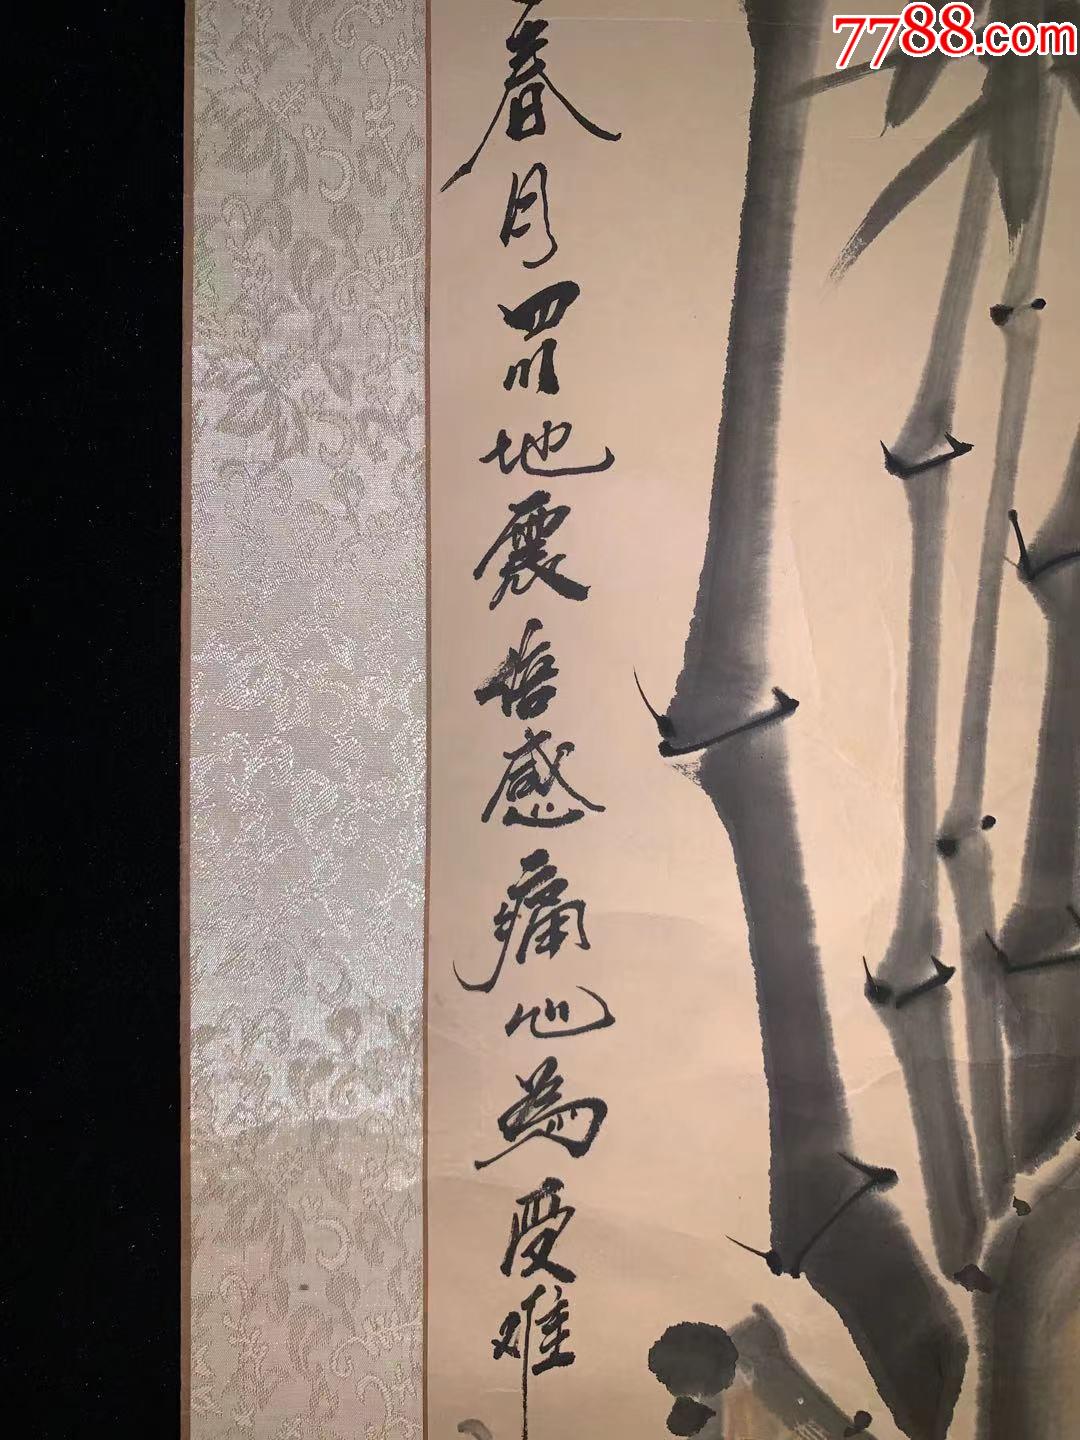 7788.com
春月四川地震倍感痛心為受难